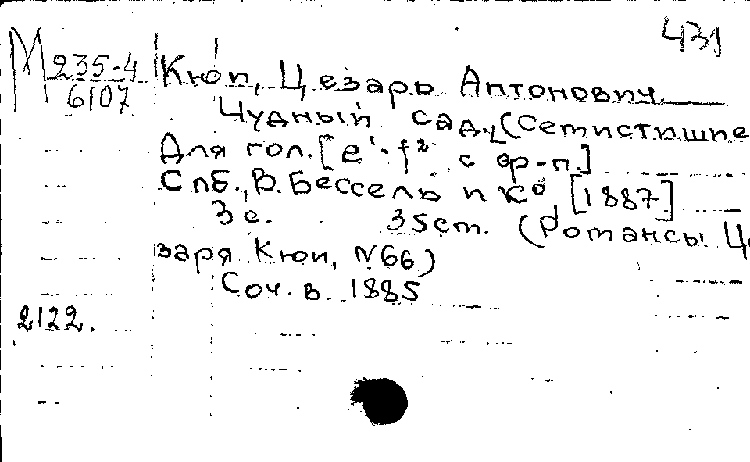 431
М 235-4
6107
Кюи, Цезарь Антонович
Чудный сад (Септистишие
Для гол. [e¹-f² с ф-п.]
Спб., В. Бессель и К⁰, [1887]
3 с. 35 ст. (Романсы Це
заря Кюи, N66)
Соч. в 1885
2122.